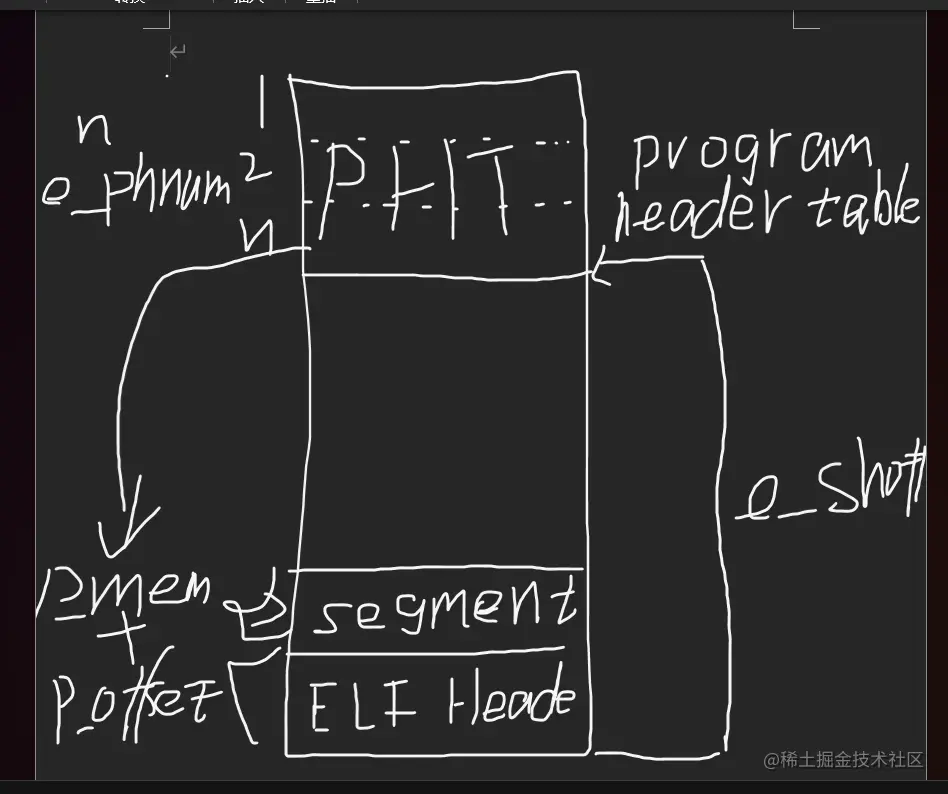 1
n
PHT
program
2
e_phnum
header table
n
e_shoff
pmem
segment
+
p_offset
ELF Heade
@稀土掘金技术社区